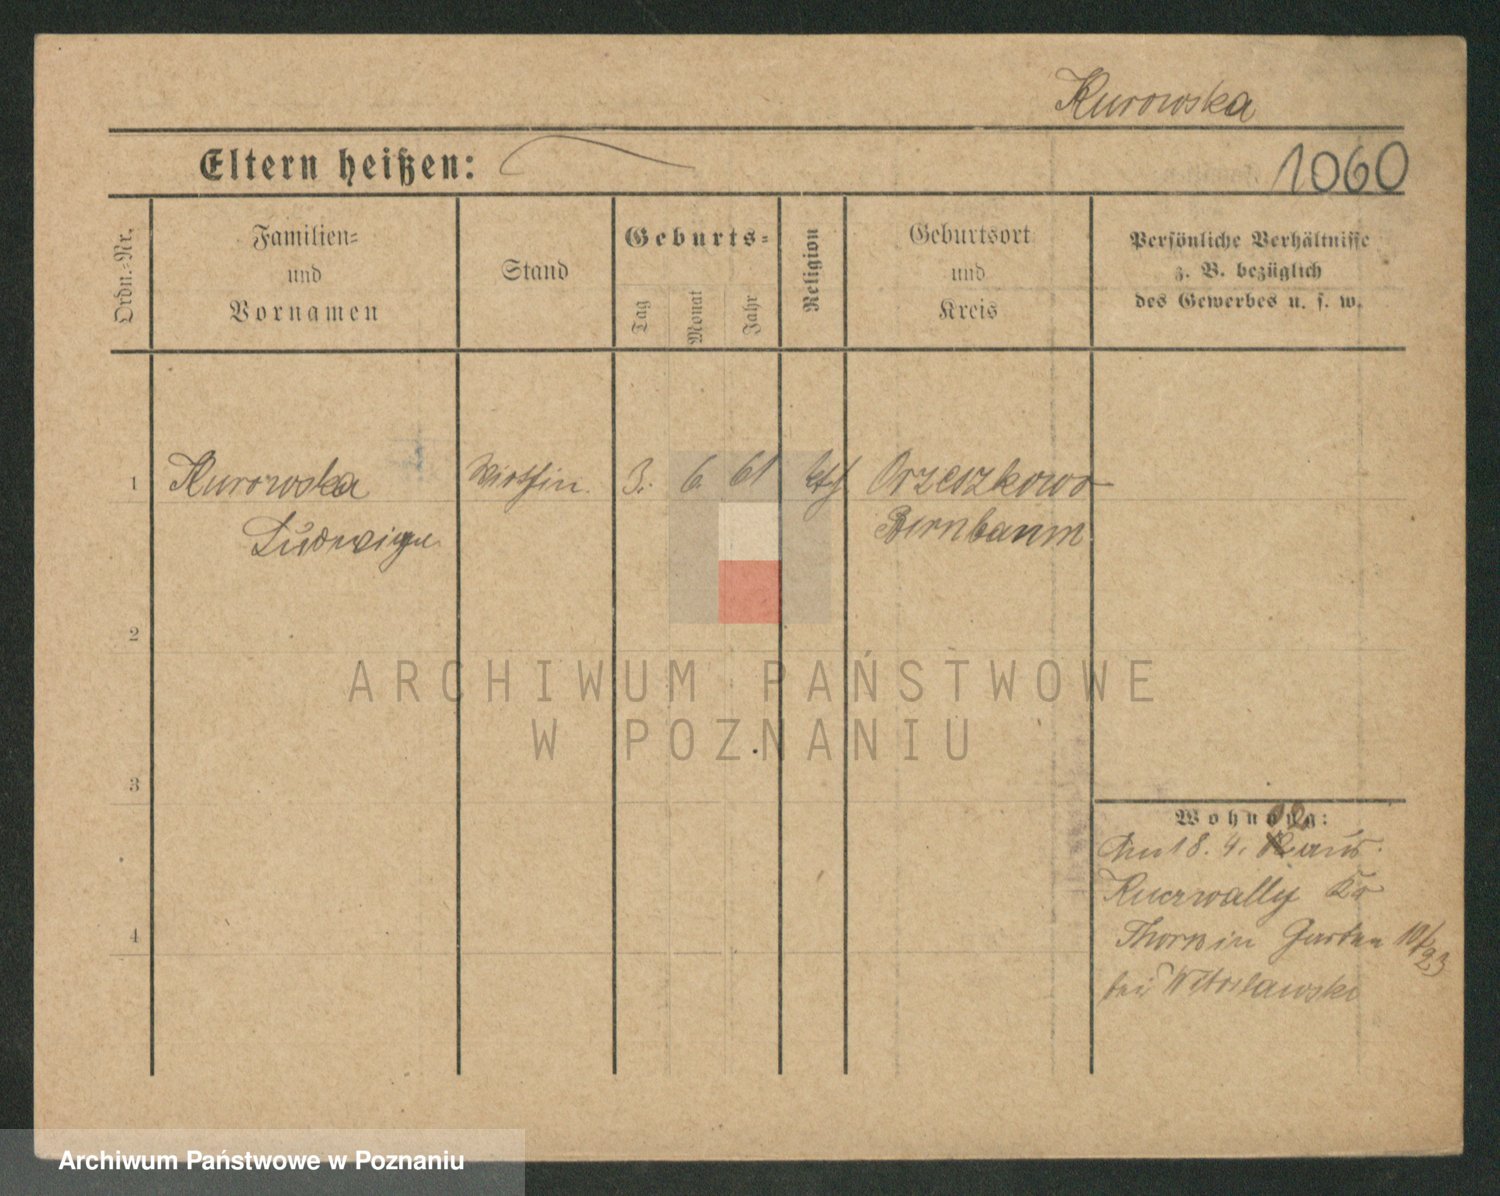 Kurowska
Eltern heißen:
1060
Ordn.-Nr.
Familien-
und
Vornamen
Stand
Geburts-
Tag
Monat
Jahr
Religion
Geburtsort
und
Kreis
Persönliche Verhältnisse
z. B. bezüglich
des Gewerbes u. s. w.
1
Kurowska
Wirthin.
3.
6.
61
kth
Orzeszkowo
Ludwiga
Birnbaum
2
3
4
Wohnung:
Am 18. 4. 02 aus
Thorn in Garten 10/23
bei Witoslawski
ARCHIWUM PAŃSTWOWE
W POZNANIU
Archiwum Państwowe w Poznaniu